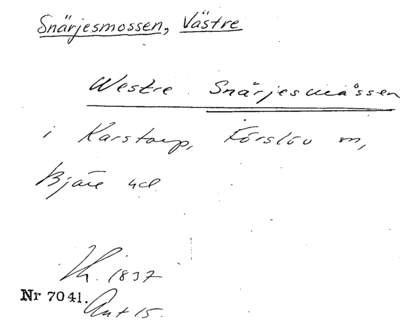 Snärjesmossen, Västre
Westre Snärjesmåssen
i Karstorp, Förslöv sn,
Bjäre hd
Lh. 1837
Nr 7041.
Ant 15.